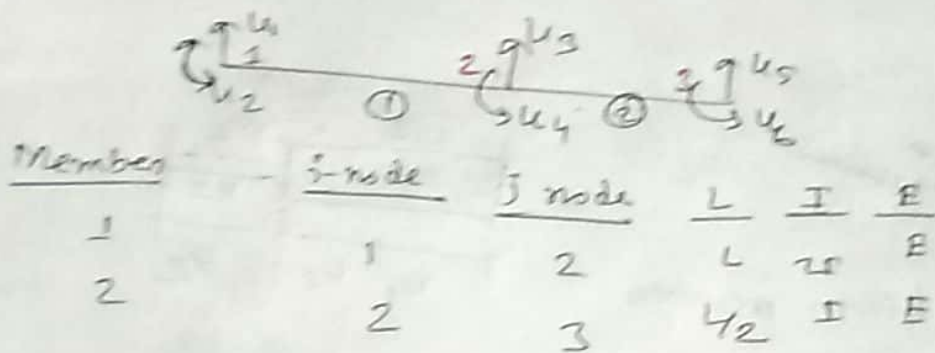 u₁
1 2 u₃ 2 u₅
u₂ ① u₄ ② u₆
Member i-node j node L I E
1 1 2 L 2I E
2 2 3 L/2 I E